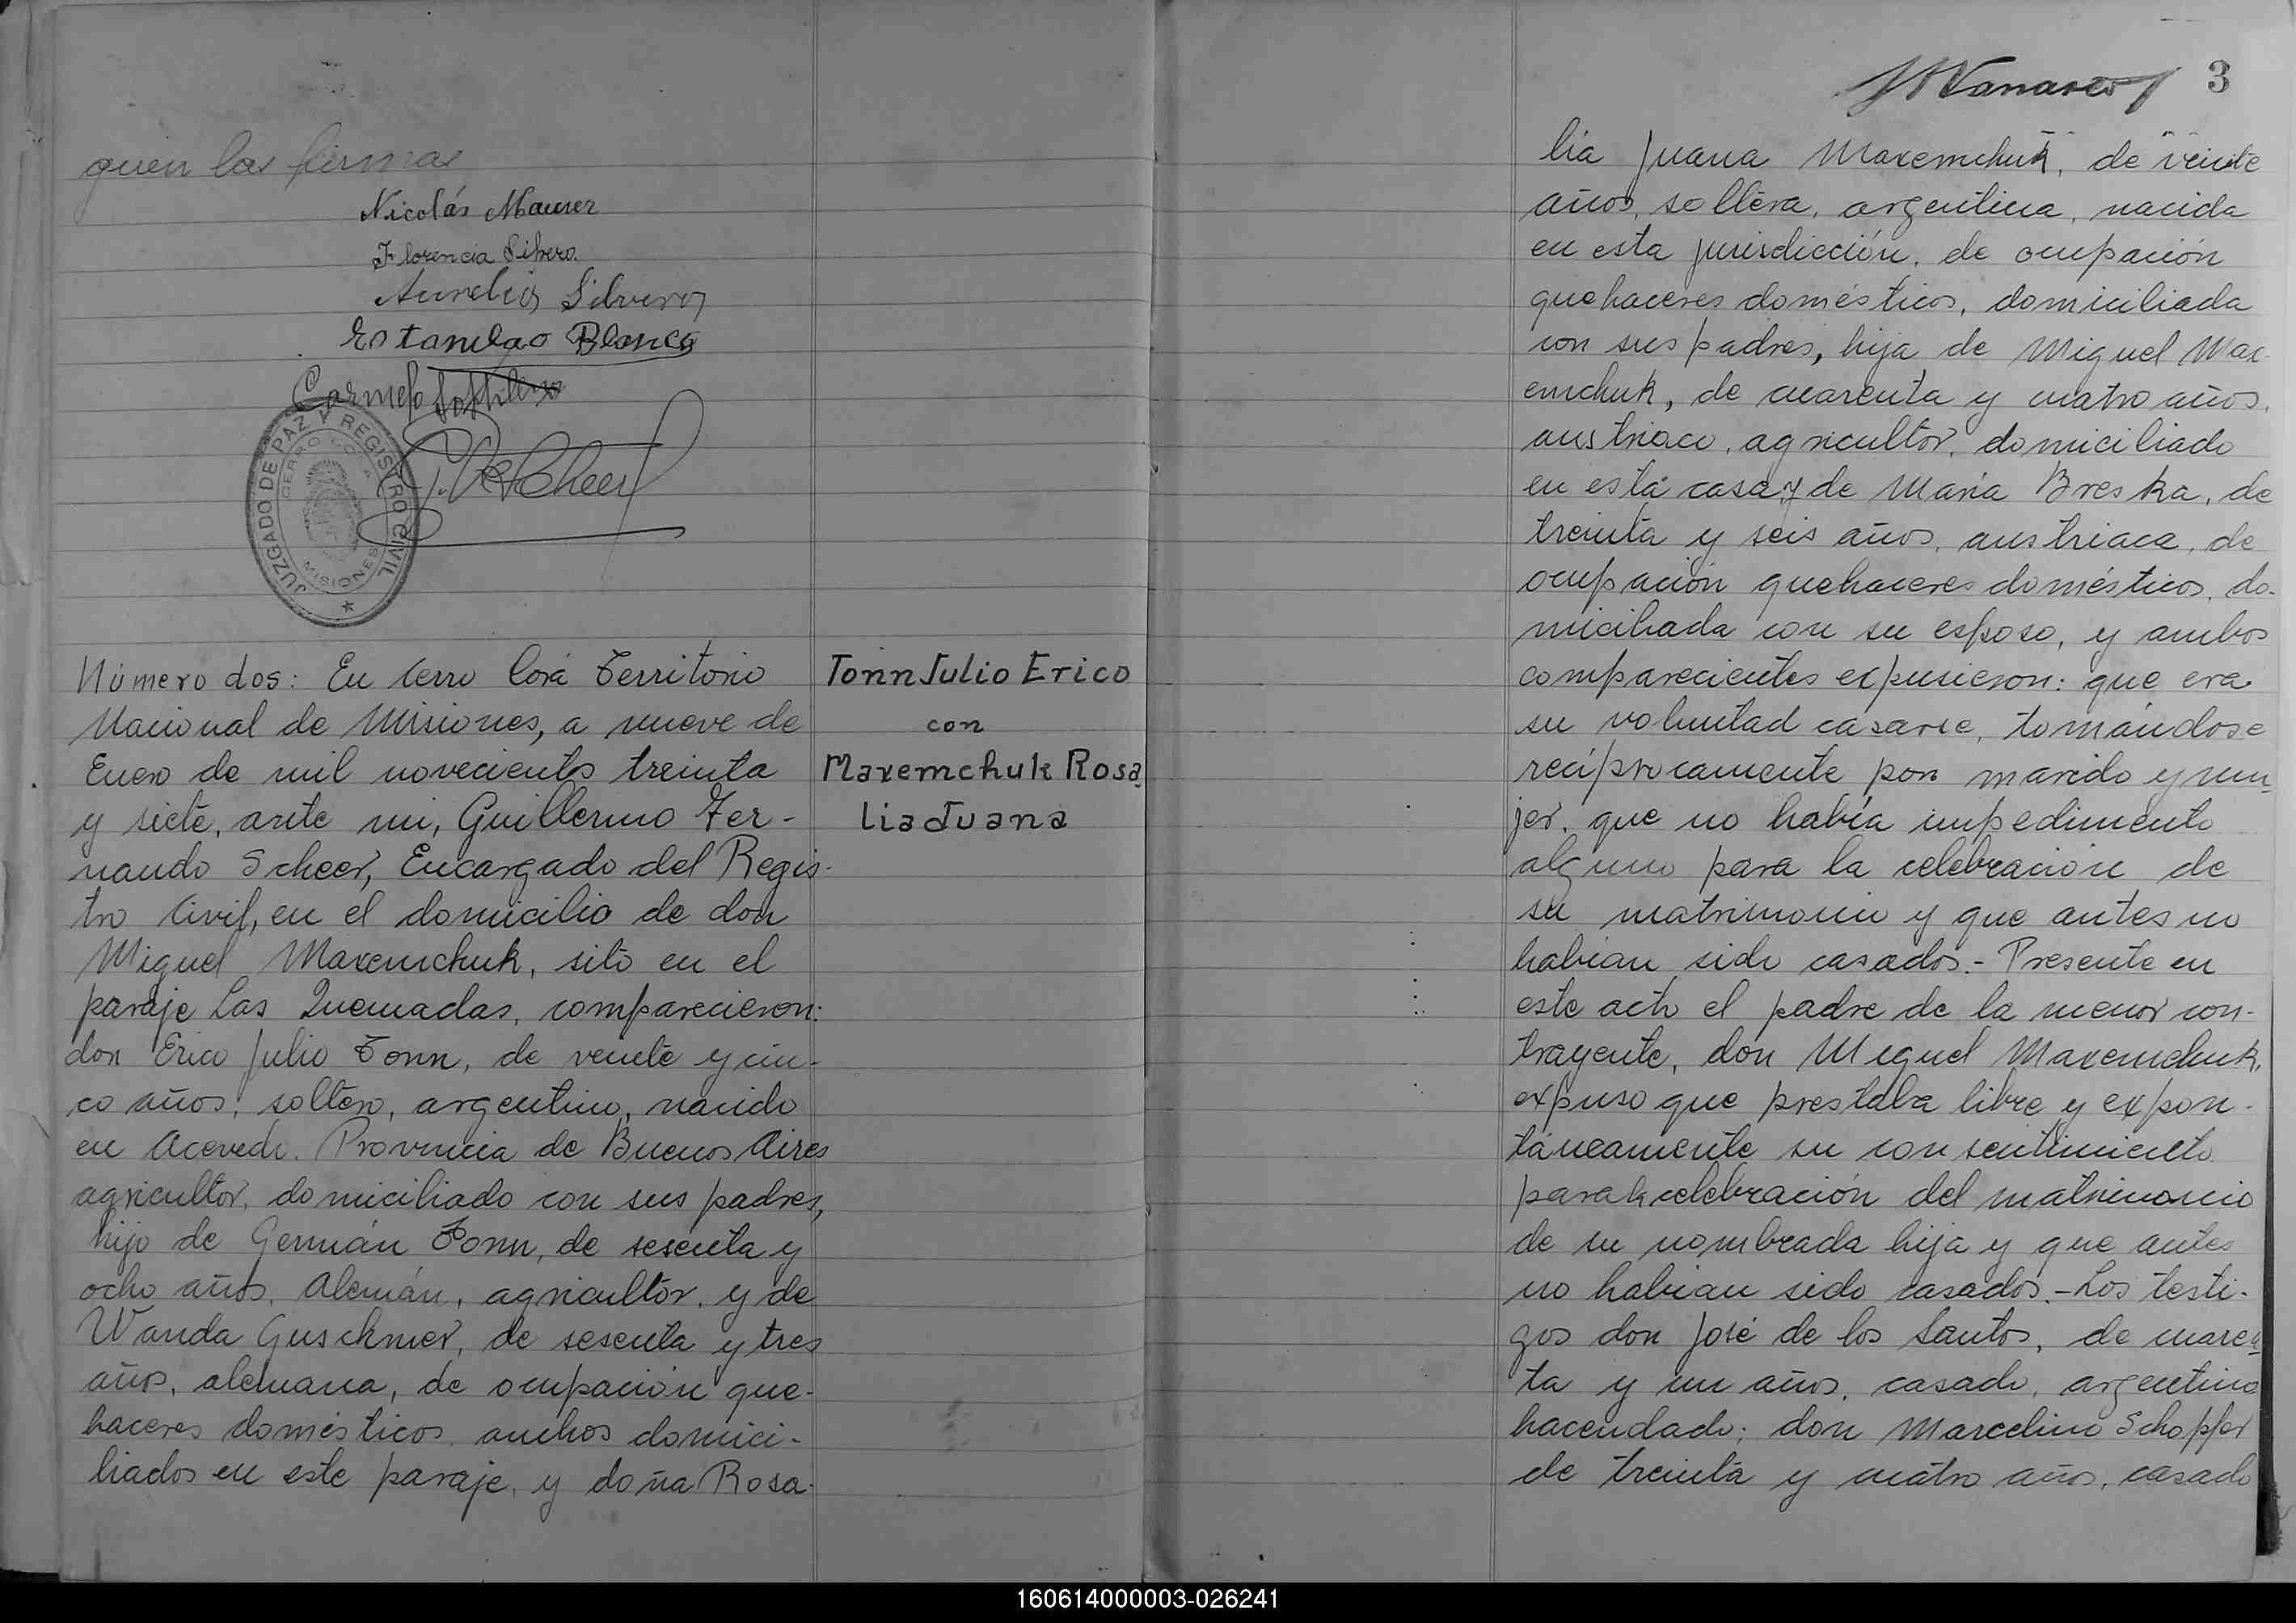 quien las firmas
Nicolás Maurer
Florencia Silvero
Aurelio Silvero
Estanilao Blanco
Carmelo
JUZGADO DE PAZ Y REGISTRO CIVIL
CERRO CORA
MISIONES
Número dos: En Cerro Corá Territorio
Nacional de Misiones, a nueve de
Enero de mil novecientos treinta
y siete, ante mi, Guillermo Fer-
nando Scheer, Encargado del Regis-
tro Civil, en el domicilio de don
Miguel Maxemchuk, sito en el
paraje Las Quemadas, comparecieron:
don Erico Julio Tonn, de veinte y cin-
co años, soltero, argentino, nacido
en Acevedo. Provincia de Buenos Aires
agricultor, domiciliado con sus padres,
hijo de Germán Tonn, de sesenta y
ocho años, Alemán, agricultor, y de
Wanda Guschmer, de sesenta y tres
años, alemana, de ocupación que-
haceres domésticos, ambos domici-
liados en este paraje, y doña Rosa-
Tonn Julio Erico
con
Maxemchuk Rosa
lia Juana
3
lia Juana Maxemchuk, de veinte
años, soltera, argentina, nacida
en esta jurisdicción, de ocupación
quehaceres domésticos, domiciliada
con sus padres, hija de Miguel Max-
emchuk, de cuarenta y cuatro años,
austriaco, agricultor, domiciliado
en esta casa y de Maria Breska, de
treinta y seis años, austriaca, de
ocupación quehaceres domésticos, do-
miciliada con su esposo, y ambos
comparecientes expusieron: que era
su voluntad casarse, tomándose
recíprocamente por marido y mu-
jer, que no había impedimento
alguno para la celebración de
su matrimonio y que antes no
habian sido casados.- Presente en
este acto el padre de la menor con-
trayente, don Miguel Maxemchuk,
expuso que prestaba libre y expon-
táneamente su consentimiento
para la celebración del matrimonio
de su nombrada hija y que antes
no habian sido casados.- Los testi-
gos don José de los Santos, de cuaren-
ta y un años, casado, argentino
hacendado; don Marcelino Schopfer
de treinta y cuatro años, casado
160614000003-026241